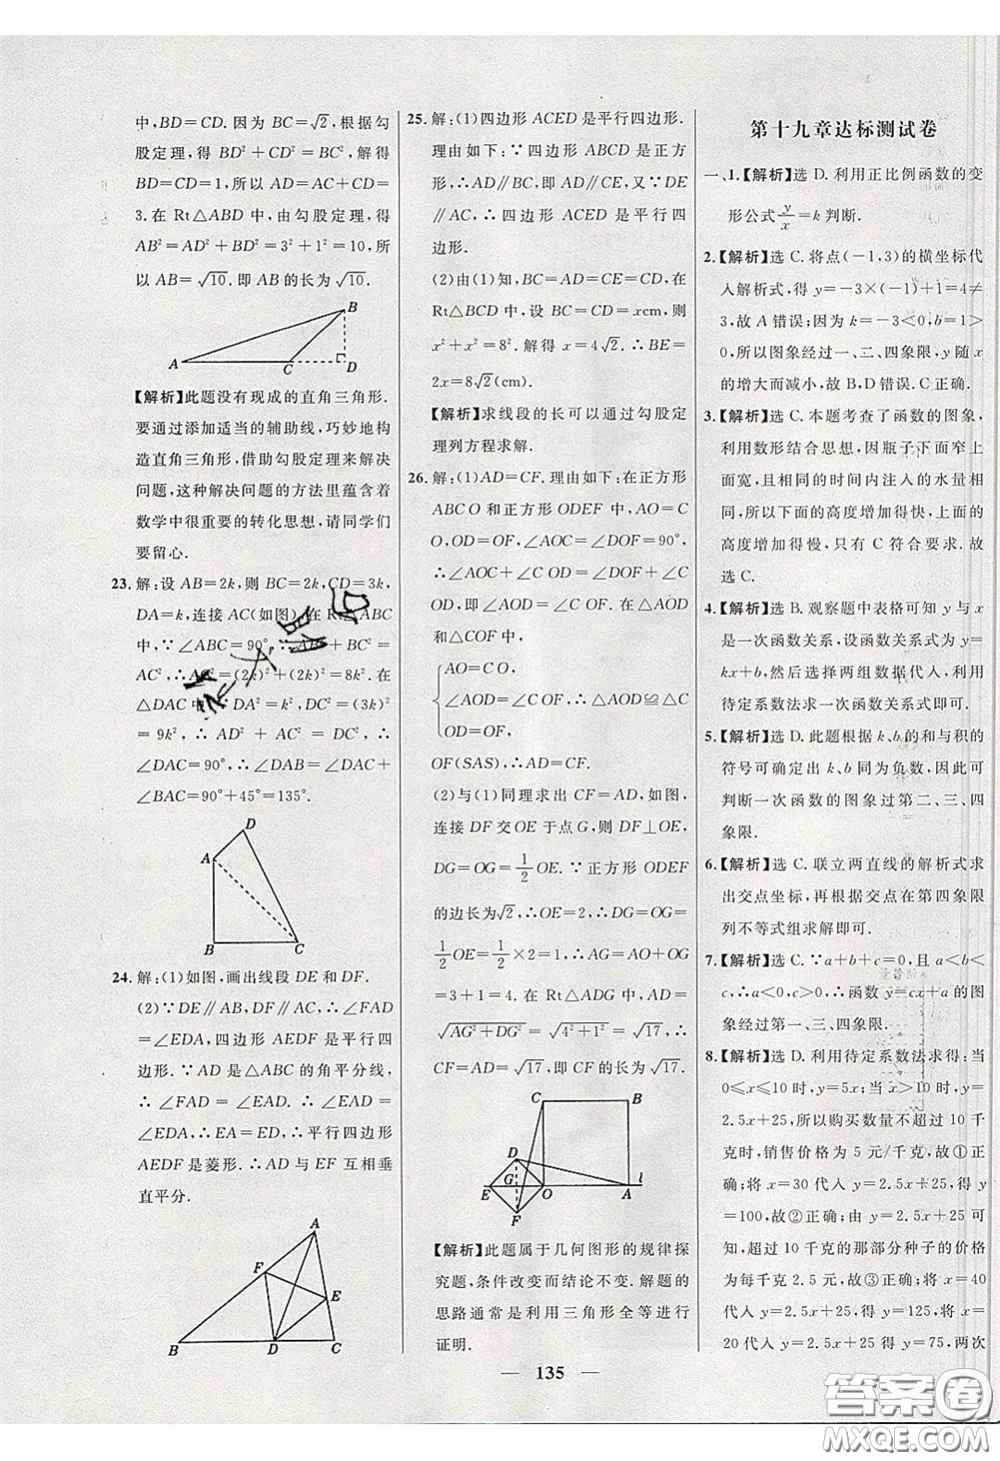 中,BD=CD. 因为 BC=√2,根据勾
股定理,得 BD²+CD²=BC²,解得
BD=CD=1,所以 AD=AC+CD=
3. 在 Rt△ABD 中,由勾股定理,得
AB²=AD²+BD²=3²+1²=10,所
以 AB=√10. 即 AB 的长为√10.
B
A
C
D
【解析】此题没有现成的直角三角形.
要通过添加适当的辅助线,巧妙地构
造直角三角形,借助勾股定理来解决
问题,这种解决问题的方法里蕴含着
数学中很重要的转化思想,请同学们
要留心.
23. 解:设 AB=2k,则 BC=2k,CD=3k,
DA=k,连接 AC(如图). 在 Rt△ABC
中,∵∠ABC=90°,∴AB²+BC²=
AC²,∴AC²=(2k)²+(2k)²=8k². 在
△DAC 中,∵DA²=k²,DC²=(3k)²=
9k²,∴AD²+AC²=DC²,∴
∠DAC=90°,∴∠DAB=∠DAC+
∠BAC=90°+45°=135°.
D
A
B
C
24. 解:(1)如图,画出线段 DE 和 DF.
(2)∵DE∥AB,DF∥AC,∴∠FAD
=∠EDA,四边形 AEDF 是平行四
边形. ∵AD 是△ABC 的角平分线,
∴∠FAD=∠EAD. ∴∠EAD=
∠EDA,∴EA=ED,∴平行四边形
AEDF 是菱形. ∴AD 与 EF 互相垂
直平分.
A
F
E
B
D
C
25. 解:(1)四边形 ACED 是平行四边形.
理由如下:∵四边形 ABCD 是正方
形,∴AD∥BC,即 AD∥CE. 又∵DE
∥AC,∴四边形 ACED 是平行四
边形.
(2)由(1)知,BC=AD=CE=CD,在
Rt△BCD 中,设 BC=CD=xcm,则
x²+x²=8². 解得 x=4√2,∴BE=
2x=8√2(cm).
【解析】求线段的长可以通过勾股定
理列方程求解.
26. 解:(1)AD=CF. 理由如下:在正方形
ABCO 和正方形 ODEF 中,∵AO=C
O,OD=OF,∠AOC=∠DOF=90°,
∴∠AOC+∠COD=∠DOF+
∠COD,即∠AOD=∠COF,在△AOD
和△COF 中,
AO=CO,
∠AOD=∠COF,∴△AOD≌△C
OD=OF.
OF(SAS),∴AD=CF.
(2)与(1)同理求出 CF=AD,如图,
连接 DF 交 OE 于点 G,则 DF⊥OE,
DG=OG=1/2OE. ∵正方形 ODEF
的边长为√2,∴OE=2,∴DG=OG=
1/2OE=1/2×2=1. ∴AG=AO+OG
=3+1=4. 在 Rt△ADG 中,AD=
√AG²+DG²=√4²+1²=√17,∴
CF=AD=√17,即 CF 的长为√17.
C
B
D
G
E
O
A
l
F
【解析】此题属于几何图形的规律探
究题,条件改变而结论不变. 解题的
思路通常是利用三角形全等进行
证明.
第十九章达标测试卷
一、1.【解析】选 D. 利用正比例函数的变
形公式y/x=k 判断.
2.【解析】选 C. 将点(-1,3)的横坐标代
入解析式,得 y=-3×(-1)+1=4≠
3,故 A 错误;因为 k=-3<0,b=1>
0,所以图象经过一、二、四象限,y 随 x
的增大而减小,故 B,D 错误. C 正确.
3.【解析】选 C. 本题考查了函数的图象,
利用数形结合思想,因瓶子下面窄上
面宽,且相同的时间内注入的水量相
同,所以下面的高度增加得快,上面的
高度增加得慢,只有 C 符合要求. 故
选 C.
4.【解析】选 B. 观察题中表格可知 y 与 x
是一次函数关系,设函数关系式为 y=
kx+b,然后选择两组数据代入,利用
待定系数法求一次函数关系式即可.
5.【解析】选 D. 此题根据 k、b 的和与积的
符号可确定出 k、b 同为负数,因此可
判断一次函数的图象过第二、三、四
象限.
6.【解析】选 C. 联立两直线的解析式求
出交点坐标,再根据交点在第四象限
列不等式组求解即可.
7.【解析】选 C. ∵a+b+c=0,且 a<b<
c,∴a<0,c>0,∴函数 y=cx+a 的图
象经过第一、三、四象限.
8.【解析】选 D. 利用待定系数法求得:当
0≤x≤10 时,y=5x;当 x>10 时,y=
2.5x+25,所以购买数量不超过 10 千
克时,销售价格为 5 元/千克,故①正
确;将 x=30 代入 y=2.5x+25,得 y
=100,故②正确;由 y=2.5x+25 得,
超过 10 千克的那部分种子的价格
为每千克 2.5 元,故③正确;将 x=40
代入 y=2.5x+25,得 y=125,将 x=
20 代入 y=2.5x+25 得 y=75,两次
— 135 —
答案卷
MXQE.COM